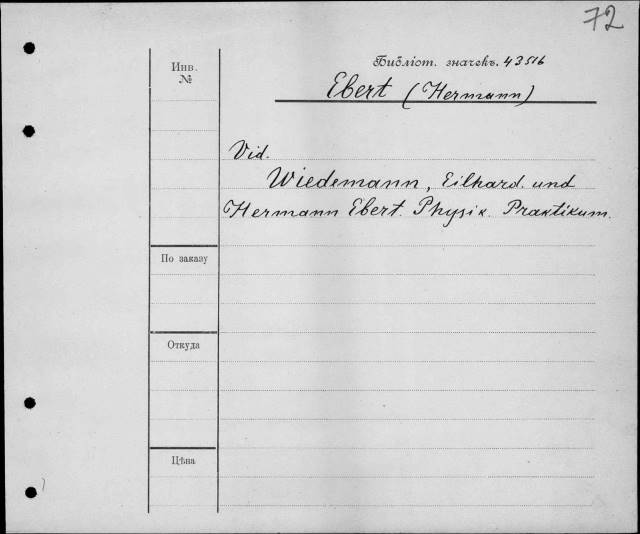 72
Инв.
№
Библіот. значекъ. 43516
Ebert (Hermann)
Vid.
Wiedemann, Eilhard. und
Hermann Ebert. Physik. Praktikum.
По заказу
Откуда
Цѣна